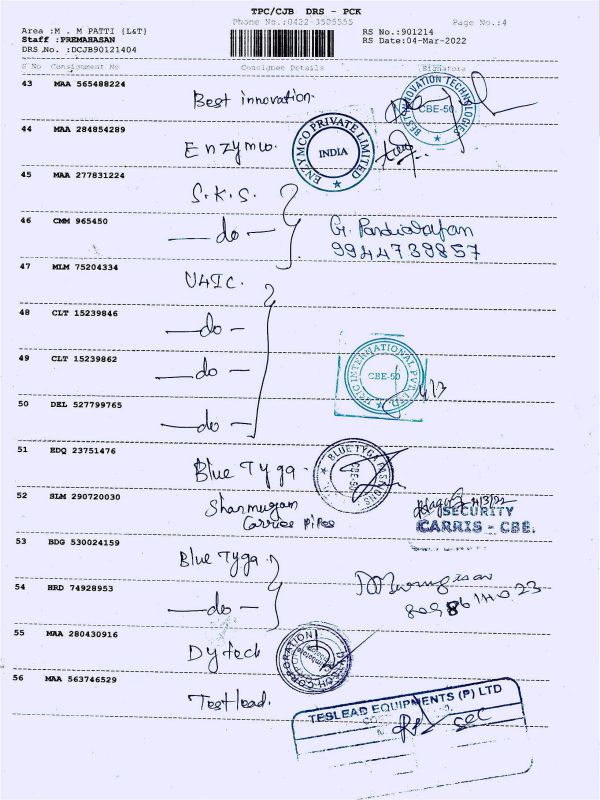 TPC/CJB DRS - PCK
Phone No.:0422-3505555 Page No.:4
Area :M . M PATTI {L&T} RS No.:901214
Staff :PREMAHASAN RS Date:04-Mar-2022
DRS No. :DCJB90121404
S No Consignment No Consignee Details Signature
43 MAA 565488224 Best innovation.
BEST INNOVATION TECHNOLOGIES
CBE-50
44 MAA 284854289 Enzymco.
ENZYMCO PRIVATE LIMITED
INDIA
45 MAA 277831224 S.K.S.
46 CMM 965450 —do—
9944739857
47 MLM 75204334 U4IC.
48 CLT 15239846 —do—
49 CLT 15239862 —do—
CBE-50
50 DEL 527799765 —do—
51 EDQ 23751476 Blue Tyga.
BLUE TYGA
52 SLM 290720030 Shanmugam
Carries Pipes
SECURITY
CARRIS - CBE.
53 BDG 530024159 Blue Tyga.
54 HRD 74928953 —do—
55 MAA 280430916 Dytech
CORPORATION
56 MAA 563746529 Testlead.
TESLEAD EQUIPMENTS (P) LTD